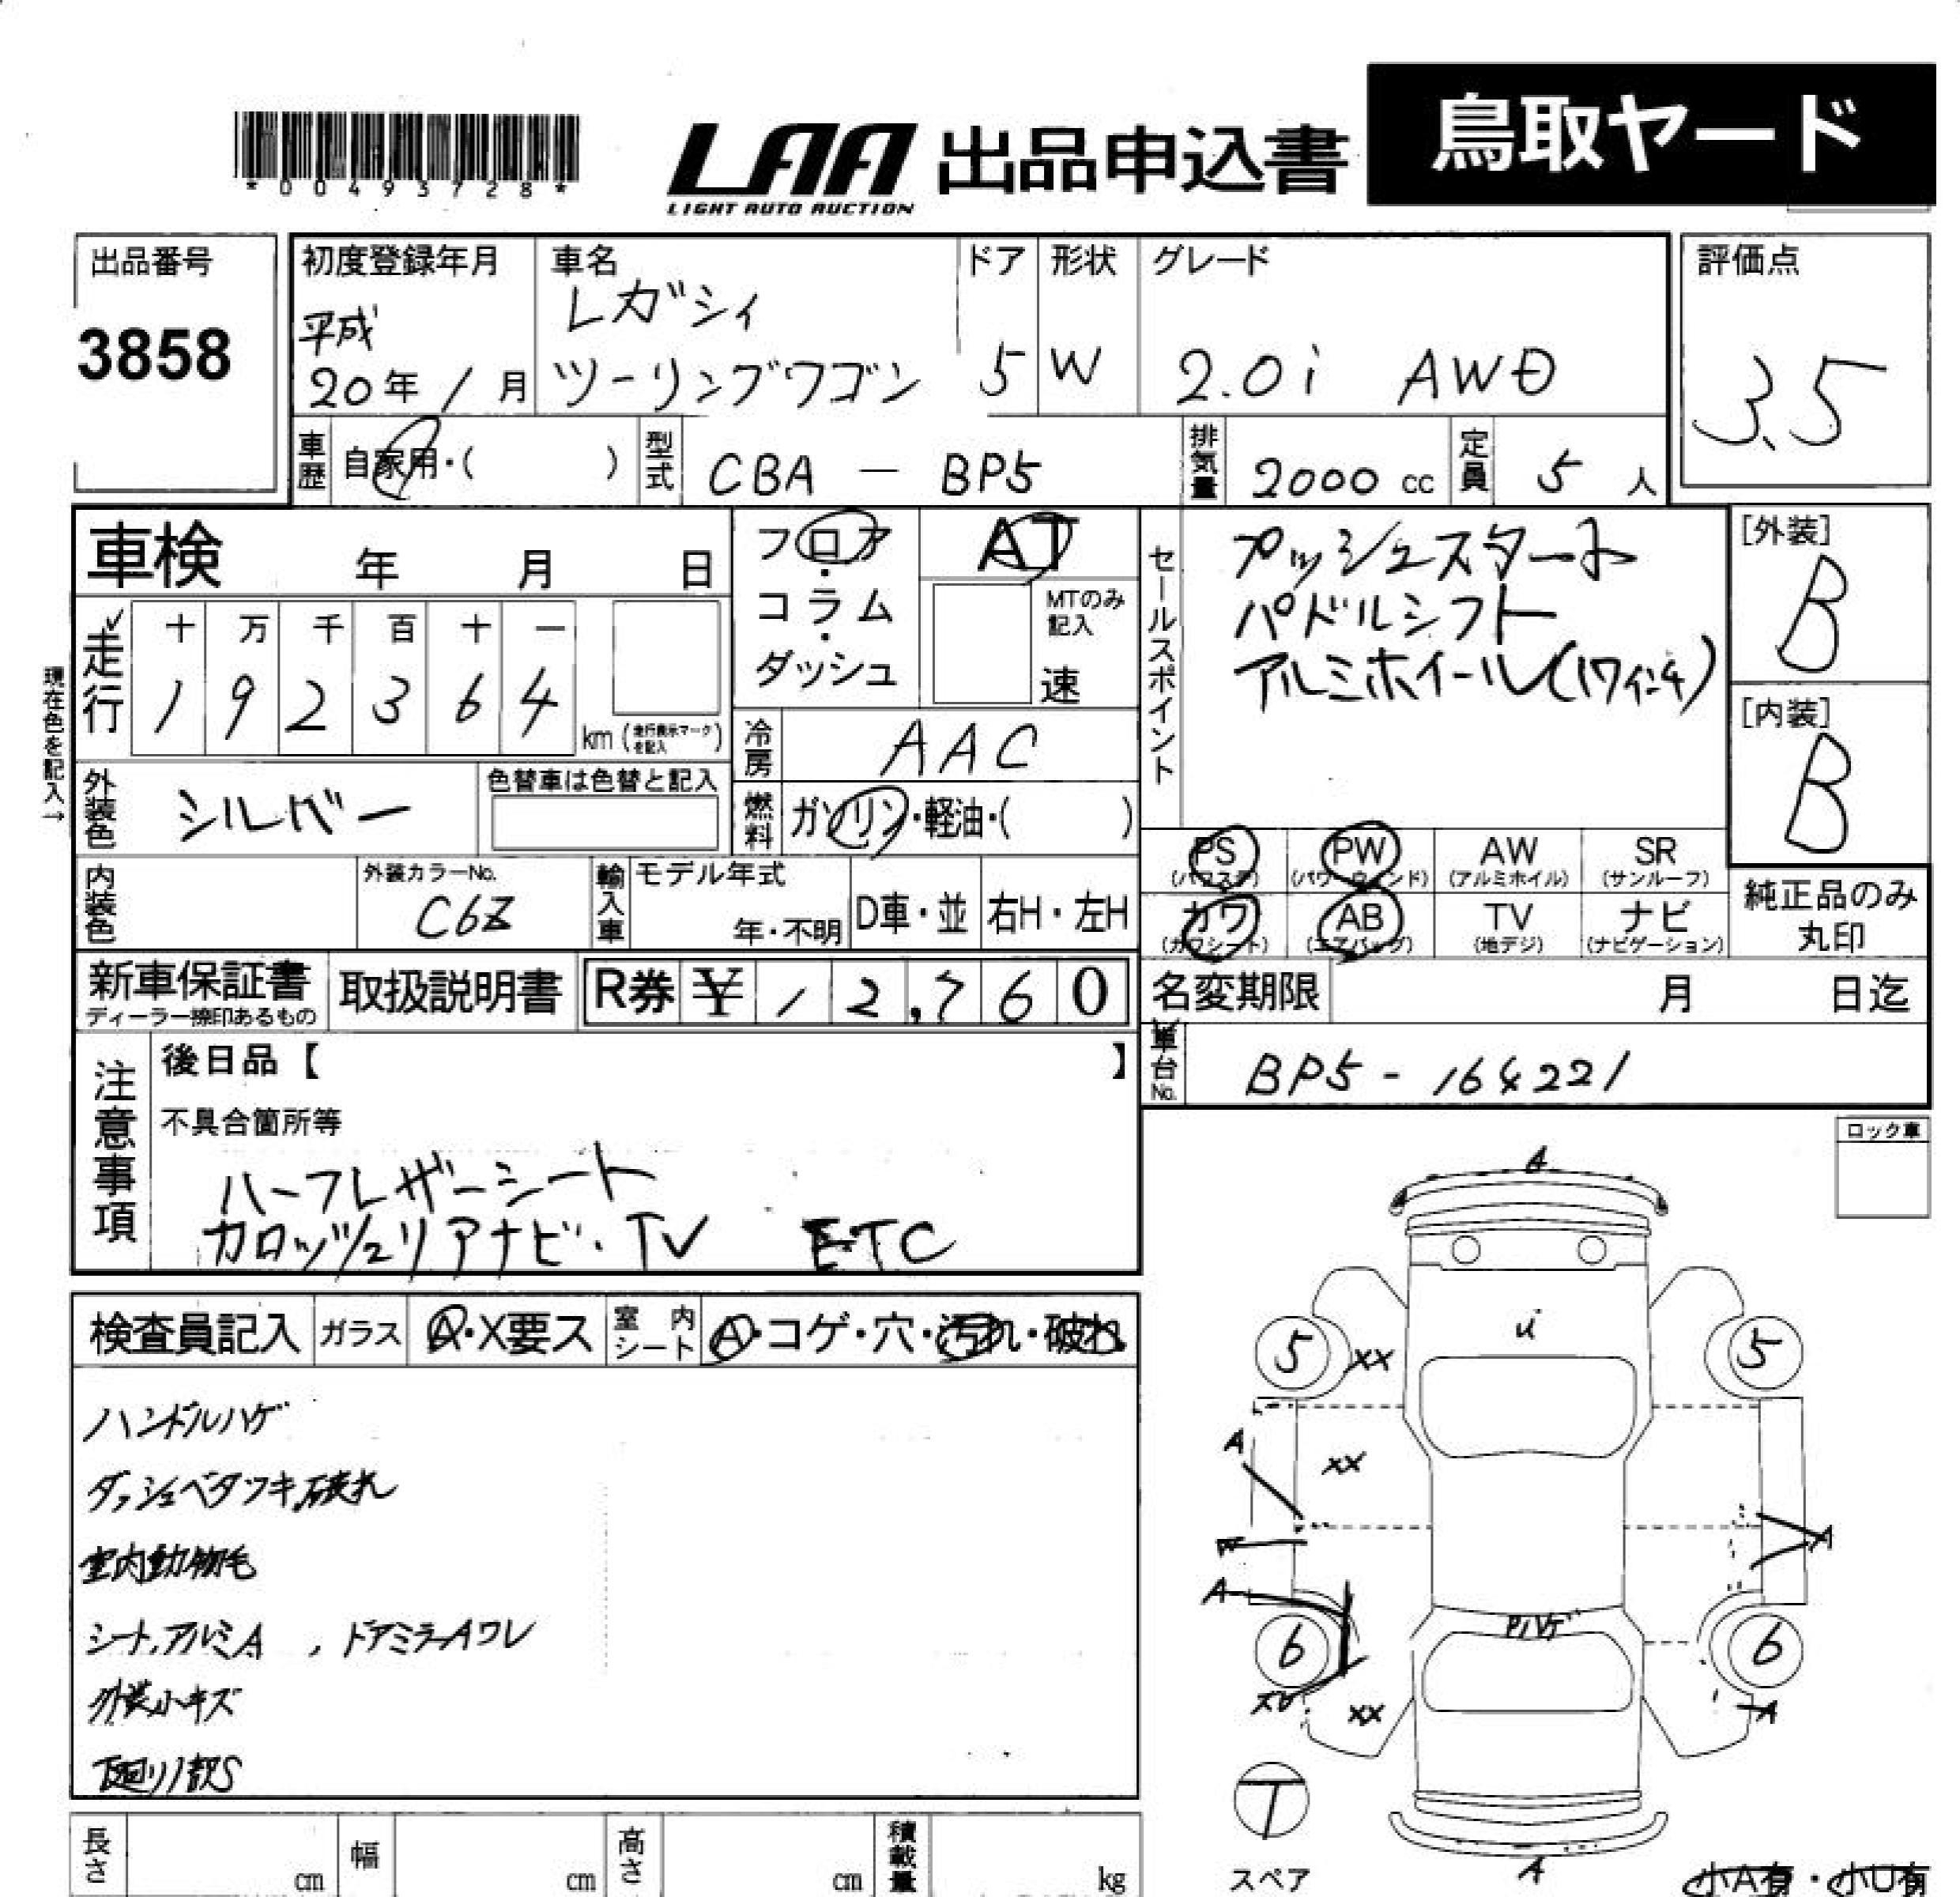 *00493728*
LAA 出品申込書
LIGHT AUTO AUCTION
鳥取ヤード
出品番号
3858
初度登録年月
平成
20年1月
車名
レガシィ
ツーリングワゴン
ドア
5
形状
W
グレード
2.0i AWD
評価点
3.5
車歴
自家用・( )
型式
CBA - BP5
排気量
2000 cc
定員
5 人
車検 年 月 日
フロア・コラム・ダッシュ
AT
MTのみ記入
速
セールスポイント
プッシュスタート
パドルシフト
アルミホイール(17インチ)
[外装]
B
[内装]
B
現在色を記入→
走行
十 万 千 百 十 一
1 9 2 3 6 4
km (走行表示マークを記入)
冷房
AAC
外装色
シルバー
色替車は色替と記入
燃料
ガソリン・軽油・( )
PS (パワステ)
PW (パワーウィンド)
AW (アルミホイル)
SR (サンルーフ)
カワ (カワシート)
AB (エアバッグ)
TV (地デジ)
ナビ (ナビゲーション)
純正品のみ
丸印
内装色
外装カラーNo.
C6Z
輸入車
モデル年式
年・不明
D車・並
右H・左H
新車保証書
ディーラー捺印あるもの
取扱説明書
R券 ¥12,760
名変期限 月 日迄
車台No.
BP5 - 164221
注意事項
後日品【 】
不具合箇所等
ハーフレザーシート
カロッツェリアナビ・TV ETC
ロック車
検査員記入
ガラス
A・X要ス
室内シート
A・コゲ・穴・汚れ・破れ
ハンドルハゲ
ダッシュベタツキ,破れ
室内動物毛
シート,アルミA , ドアミラーAワレ
外装小キズ
下廻り1部S
A
u
5 XX 5
A
XX
W
A
A
6 6
XX
A
T
スペア
A
小A有・小U有
長さ cm
幅 cm
高さ cm
積載量 kg